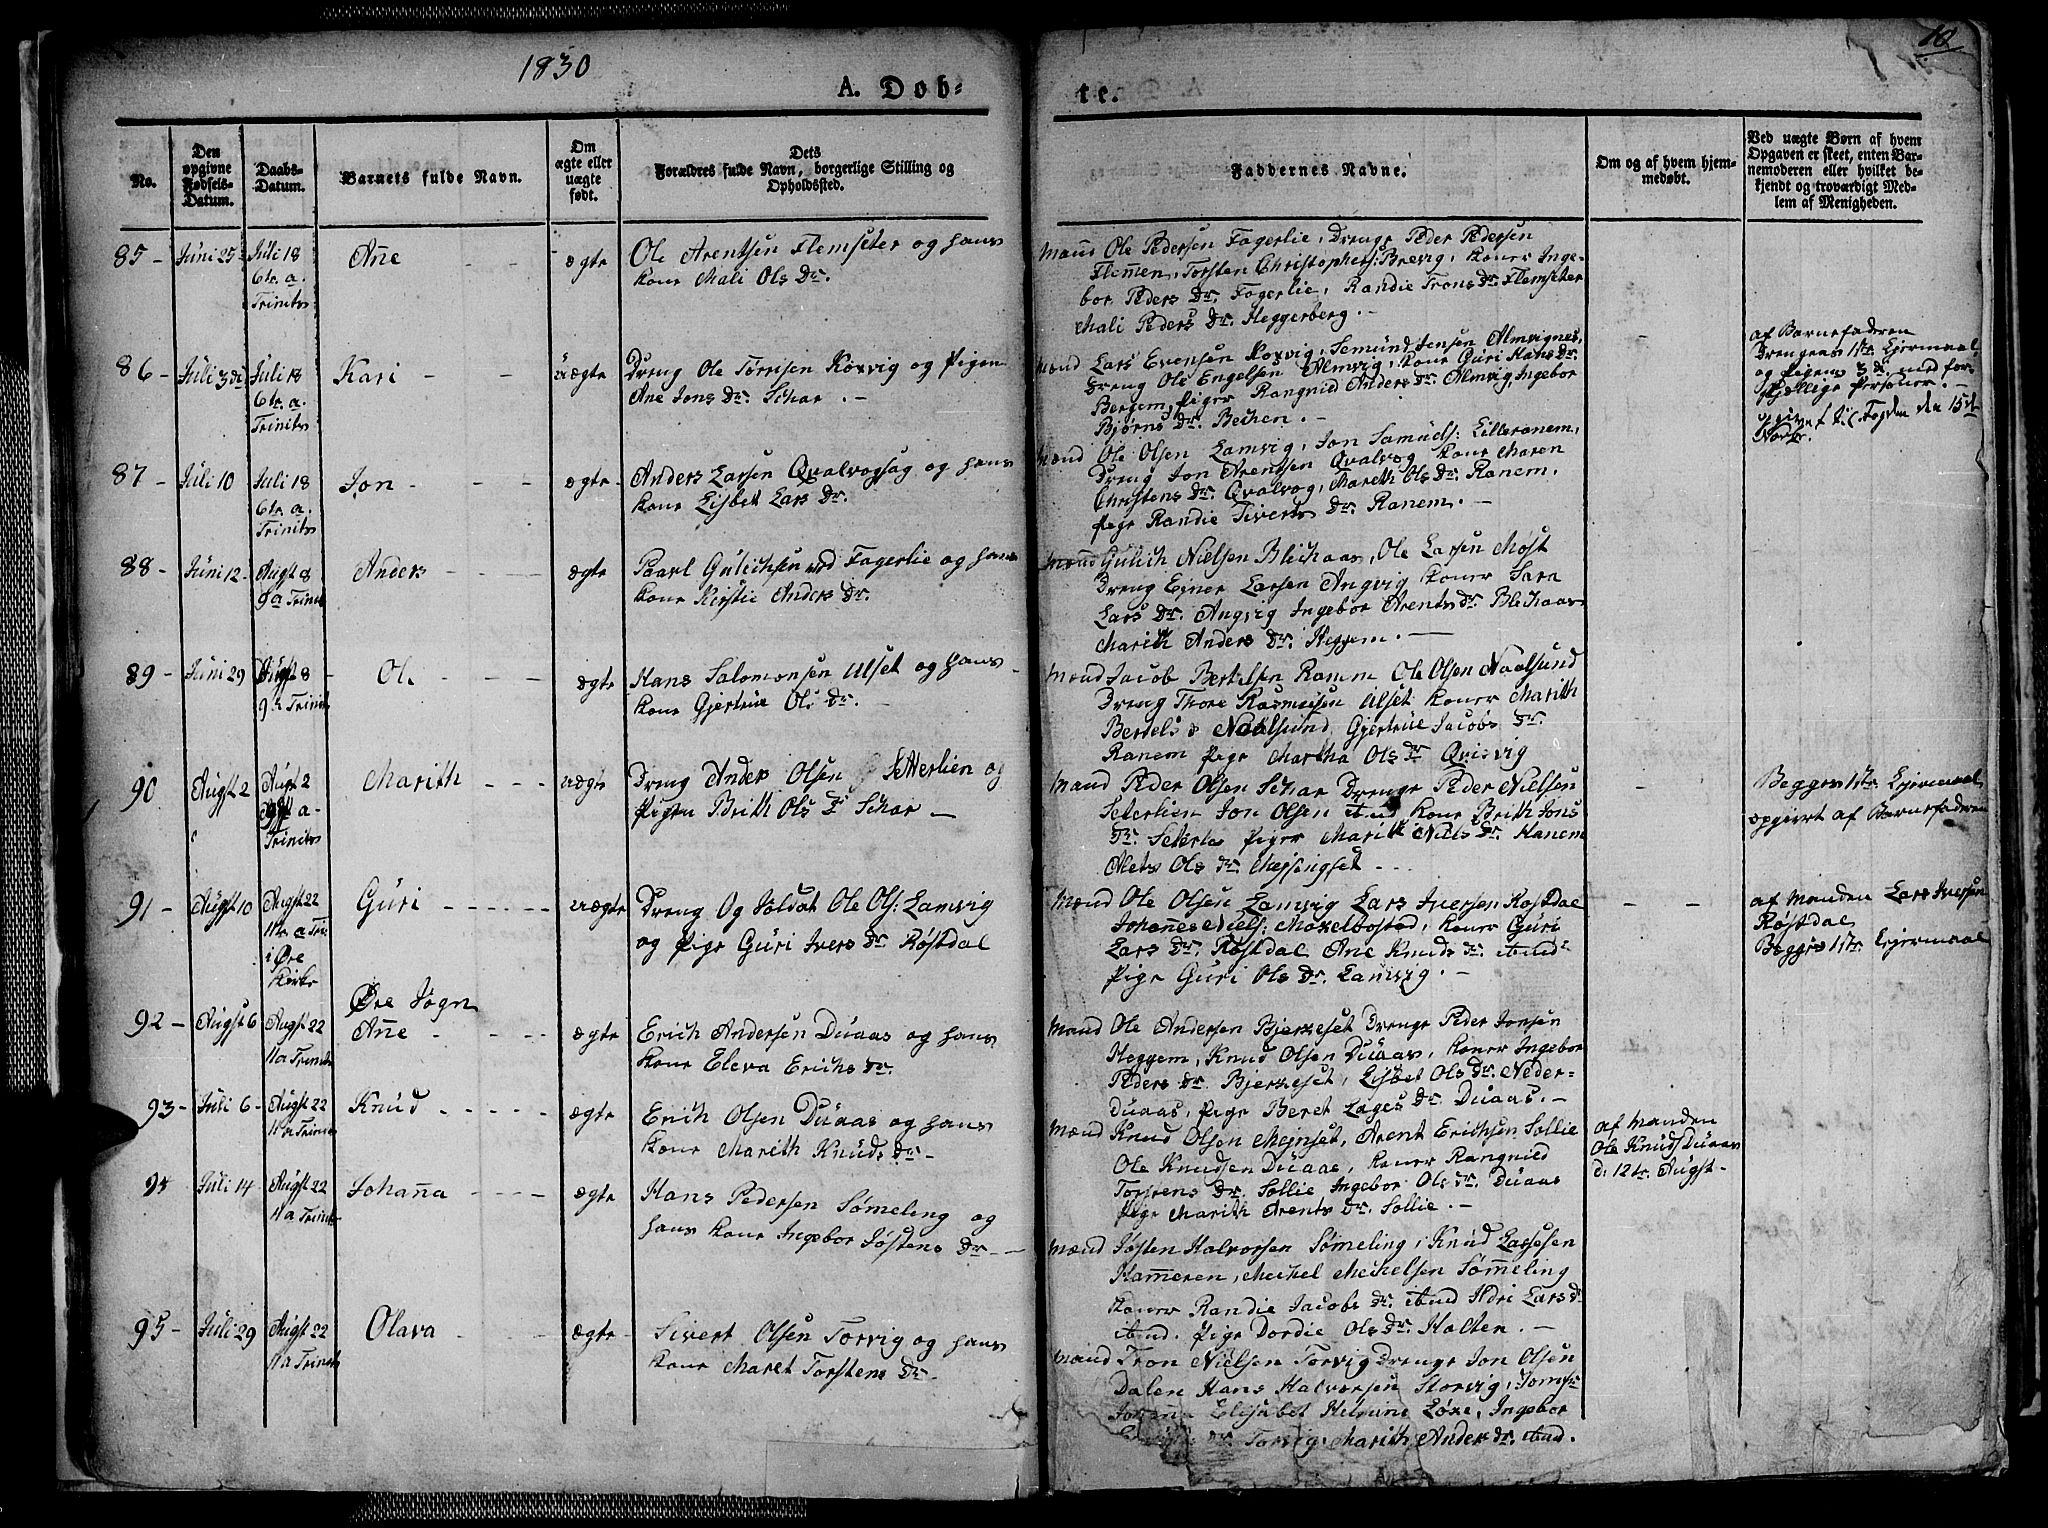 1830
10
A. Døb-
te.
No.
Den opgivne Fødsels-Datum.
Daabs-Datum.
Barnets fulde Navn.
Om ægte eller uægte født.
Dets
Forældres fulde Navn, borgerlige Stilling og
Opholdssted.
Faddernes Navne.
Om og af hvem hjem-
medøbt.
Ved uægte Børn af hvem
Opgaven er skeet, enten Bar-
nemoderen eller hvilket be-
kjendt og troværdigt Med-
lem af Menigheden.
85 - Juni 25 Juli 18
6te. a.
Trinits
Añe - - ægte
Ole Arentsen Flemseter og hans
kone Mali Ols Dr.
Mand Ole Pedersen Fagerlie, Drenge Peder Pedersen
Flemen, Torsten Christophers: Brevig, koner Inge-
bor Peders Dr. Fagerlie, Randie Trons Dr. Flemseter
Mali Peders Dr. Heggerberg. -
86 - Juli 3di Juli 18
6te. a.
Trinits
Kari - - uægte
Dreng Ole Torrisen Roxvig og Pigen
Ane Jons Dr. Schar. -
Mænd Lars Evensen Roxvig, Semund Jensen Almvignes,
Dreng Ole Engelsen Almvig, kone Guri Hans Dr.
Bergem, Piger Rangnid Anders Dr. Almvig, Ingebor
Bjørns Dr. Bechen. -
af Barnefaderen
Drengens 1ste Leiermaal
og Pigens 3di med for-
skjellige Personer. -
til Fogden den 15de
Novbr.
87 - Juli 10 Juli 18
6te. a.
Trinits
Jon - - - ægte
Anders Larsen Qvalvogsag og hans
kone Lisbet Lars Dr.
Mænd Ole Olsen Lamvig, Jon Samuels: Lilleranem,
Dreng Jon Arentsen Qvalvog kone Maren
Christens Dr. Qvalvog, Mareth Ols Dr. Ranem,
Pige Randie Siverts Dr. Ranem. -
88 - Juni 12 Augst 8
9 a Trinits
Anders - - - ægte
Paarl Gulichsen ved Fagerlie og hans
kone Kirstie Anders Dr.
Mænd Gulich Nielsen Blichaas, Ole Larsen Møst
Dreng Ejner Larsen Angvig koner Sara
Lars Dr. Angvig Ingebor Arents Dr. Blichaas
Marith Anders Dr. Heggem. -
89 - Juni 29 Augst 8
9 a Trinits
Ole - - - ægte
Hans Salomonsen Ulset og hans
kone Gjertrue Ols Dr. -
Mænd Jacob Bertelsen Ranem Ole Olsen Naalsund
Dreng Thore Rasmusen Ulset koner Marith
Bertels D Naalsund, Gjertrue Jacobs Dr.
Ranem Pige Martha Ols Dr Qvisvig
90 Augst 2 Augst 2
a-
Trinits
Marith - - - uægte
Dreng Anders Olsen Setterlien og
Pigen Brith Ols D Schar -
Mand Peder Olsen Schar Drenge Peder Nielsen
Seterlien Jon Olsen ibid kone Brith Jons
Dr. Seterlie Piger Marith Niels Dr. Hanem
Mets Ols Dr. Mejsingset - - -
Begges 1ste Leiermaal
opgivet af Barnefaderen
91 - Augst 10 Augst 22
11te a Tri:
i Øre
Kirke
Guri - - - - - uægte
Dreng Og Soldat Ole Ols: Lamvig
og Pige Guri Ivers Dr Røstdal
Mænd Ole Olsen Lamvig Lars Iversen Røstdal
Johannes Niels: Moxelbostad, koner Guri
Lars Dr. Røstdal Ane Knuds Dr. ibid-
Pige Guri Ols Dr. Lamvig. -
af Manden Lars Iversen
Røstdal
Begges 1ste Leiermaal
Øre Sogn
92 - Augst 6 Augst 22
11 a Trinits
Añe - - - ægte
Erich Andersen Duaas og hans
kone Eleva Erichs Dr.
Mænd Ole Andersen Bjerkeset Drenge Peder Jonsen
Heggem, Knud Olsen Duaas, koner Ingebor
Peders Dr. Bjerkeset, Lisbet Ols Dr. Neder-
Duaas, Pige Beret Lages Dr. Duaas. -
93 - Juli 6 - Augst 22
11 a Trinits
Knud - - - - ægte
Erich Olsen Duaas og hans
kone Marith Knuds Dr -
Mænd Knud Olsen Mejnset, Arent Erichsen Sollie
Ole Knudsen Duaas, koner Rangnild
Torstens Dr. Sollie Ingebor Ols Dr. Duaas
Pige Marith Arents Dr. Sollie. -
af Manden
Ole Knuds: Duaas
d: 12te Augst -
94 - Juli 14 - Augst 22
11 a Trinits
Johaña - - - - ægte
Hans Pedersen Sømeling og
hans kone Ingebor Jøstens Dr -
Mænd Jøsten Halvorsen Sømeling, Knud Lassesen
Hameren, Mickel Mickelsen Sømeling
koner Randie Jacobs Dr. ibid Ildri Lars D
ibid. Pige Dordie Ols Dr. Holten. -
95 - Juli 29 Augst 22
11 a Trinits
Olava - - - ægte
Sivert Olsen Torvig og hans
kone Maret Torstens Dr -
Mænd Tron Nielsen Torvig Drenge Jon Olsen
Dalen Hans Halvorsen Storvig,
Elisabet Løxe, Ingebor
Dr. Torvig, Marith Anders Dr. ibid.